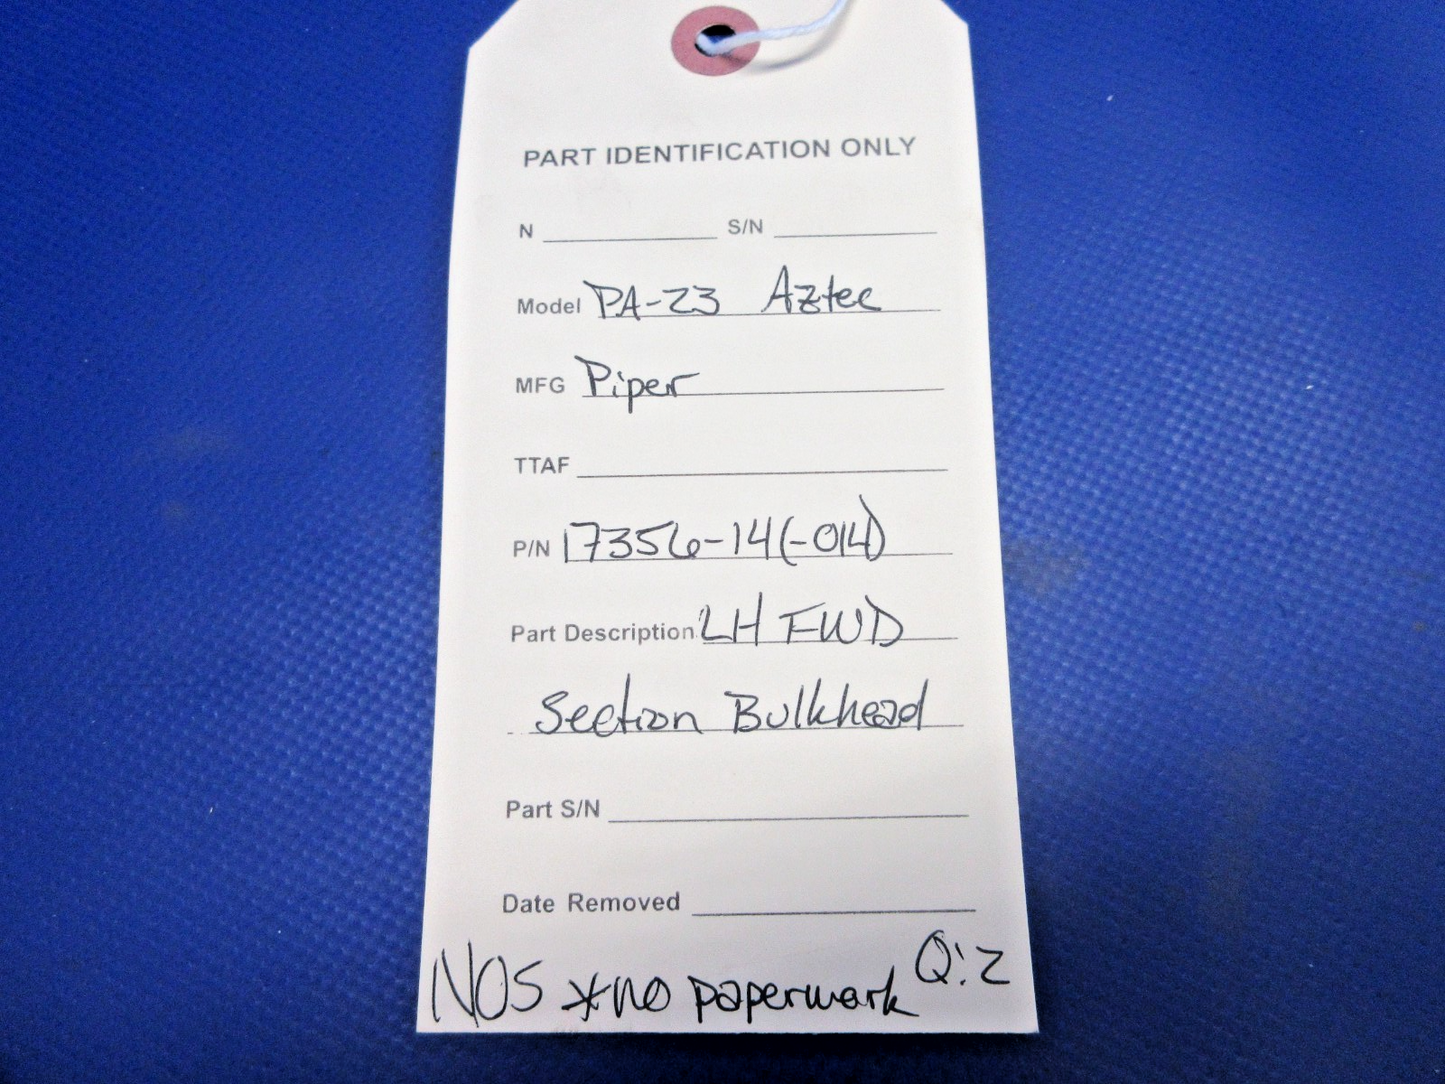 PART IDENTIFICATION ONLY
N S/N
Model PA-23 Aztec
MFG Piper
TTAF
P/N 17356-14(-014)
Part Description LH FWD
Section Bulkhead
Part S/N
Date Removed
NOS *no paperwork Q:2